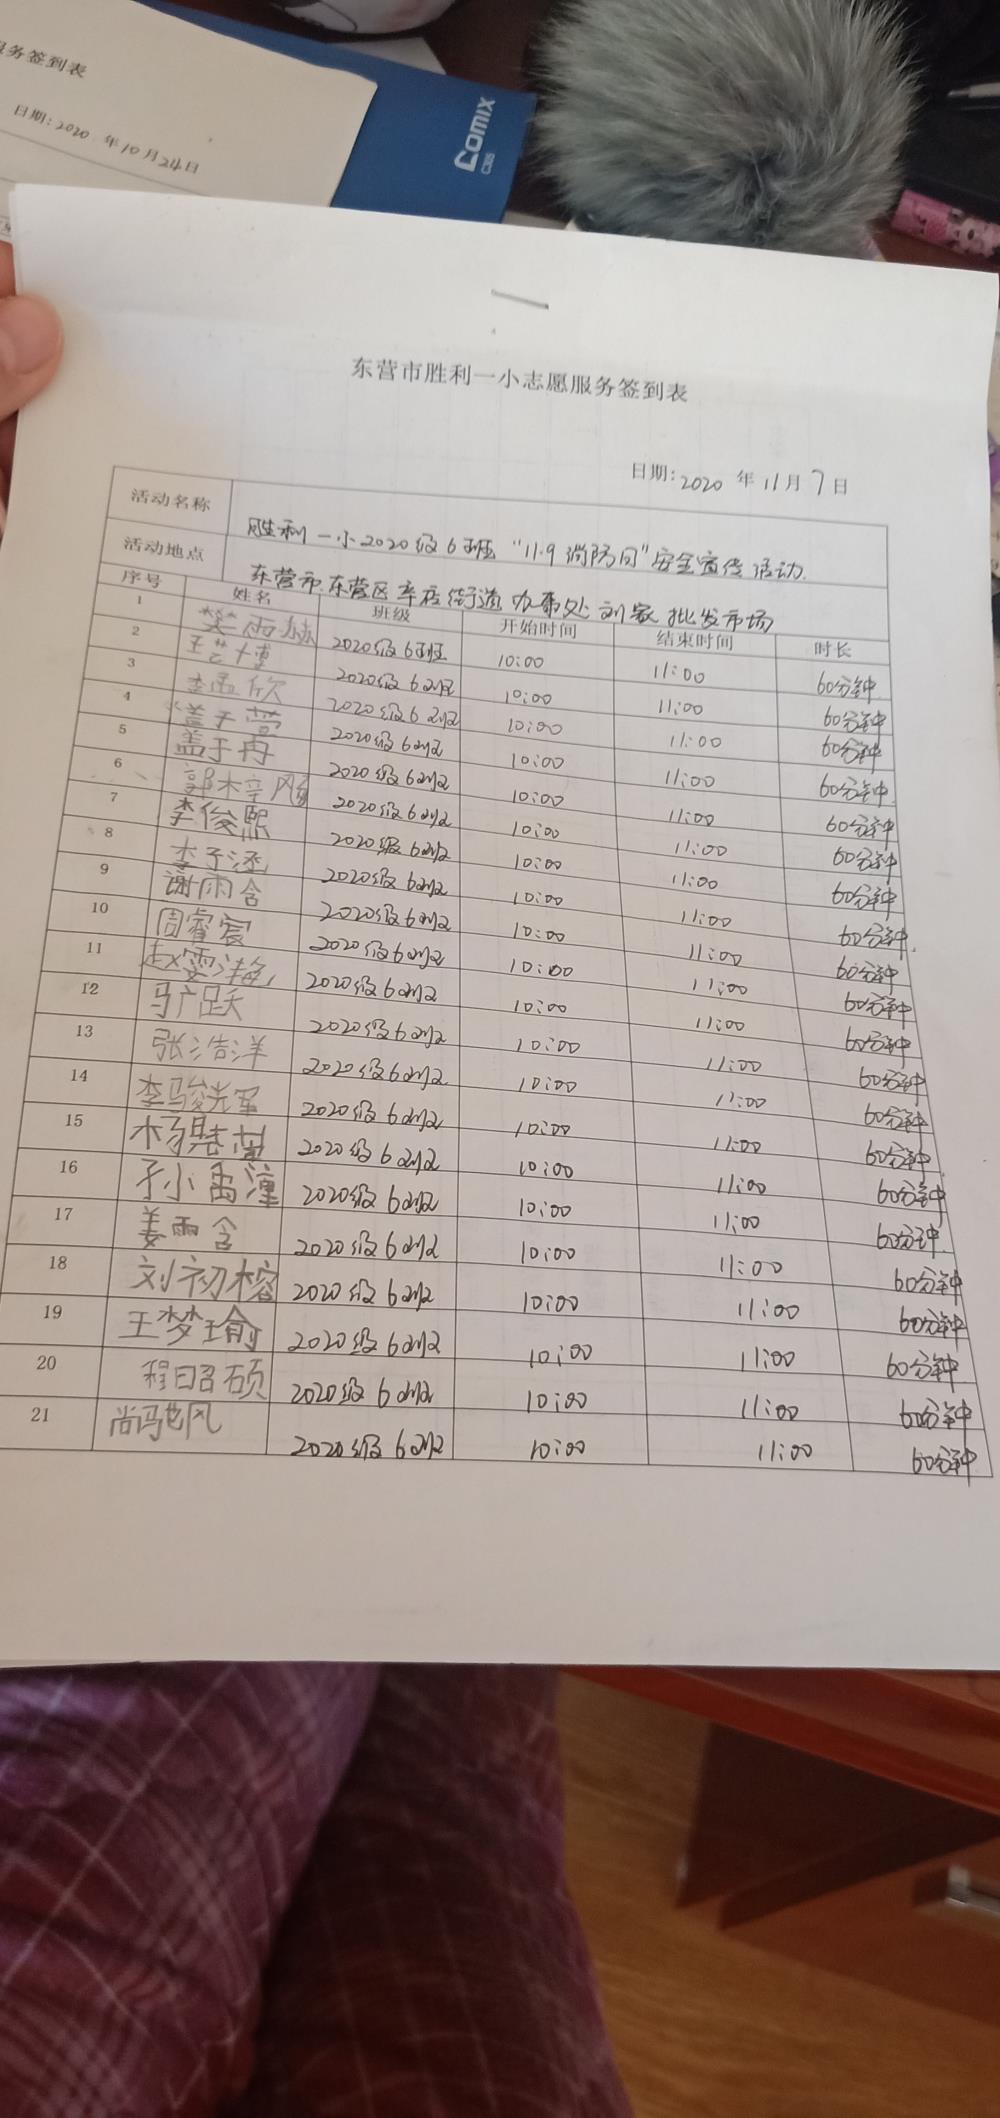 服务签到表
日期:2020 年10月24日
Comix
C35
东营市胜利一小志愿服务签到表
日期:2020 年11月7日
活动名称 胜利一小2020级6班 "11.9消防日"安全宣传活动.
活动地点 东营市东营区辛店街道办事处刘家批发市场
序号 姓名 班级 开始时间 结束时间 时长
1 樊雨 2020级6班 10:00 11:00 60分钟
2 王艺博 2020级6班 10:00 11:00 60分钟
3 李孟欣 2020级6班 10:00 11:00 60分钟
4 盖于营 2020级6班 10:00 11:00 60分钟
5 盖于冉 2020级6班 10:00 11:00 60分钟
6 郭梓飏 2020级6班 10:00 11:00 60分钟
7 李俊熙 2020级6班 10:00 11:00 60分钟
8 李子涵 2020级6班 10:00 11:00 60分钟
9 谢雨含 2020级6班 10:00 11:00 60分钟
10 周睿宸 2020级6班 10:00 11:00 60分钟
11 赵雯 2020级6班 10:00 11:00 60分钟
12 马广跃 2020级6班 10:00 11:00 60分钟
13 张浩洋 2020级6班 10:00 11:00 60分钟
14 李骏 2020级6班 10:00 11:00 60分钟
15 杨 2020级6班 10:00 11:00 60分钟
16 孙禹潼 2020级6班 10:00 11:00 60分钟
17 姜雨含 2020级6班 10:00 11:00 60分钟
18 刘初榕 2020级6班 10:00 11:00 60分钟
19 王梦瑜 2020级6班 10:00 11:00 60分钟
20 程昭硕 2020级6班 10:00 11:00 60分钟
21 尚驰风 2020级6班 10:00 11:00 60分钟